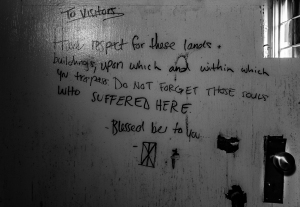 To Visitors
Have respect for these lands +
buildings, upon which and within which
you trespass DO NOT FORGET THOSE SOULS
WHO SUFFERED HERE
- Blessed be to you